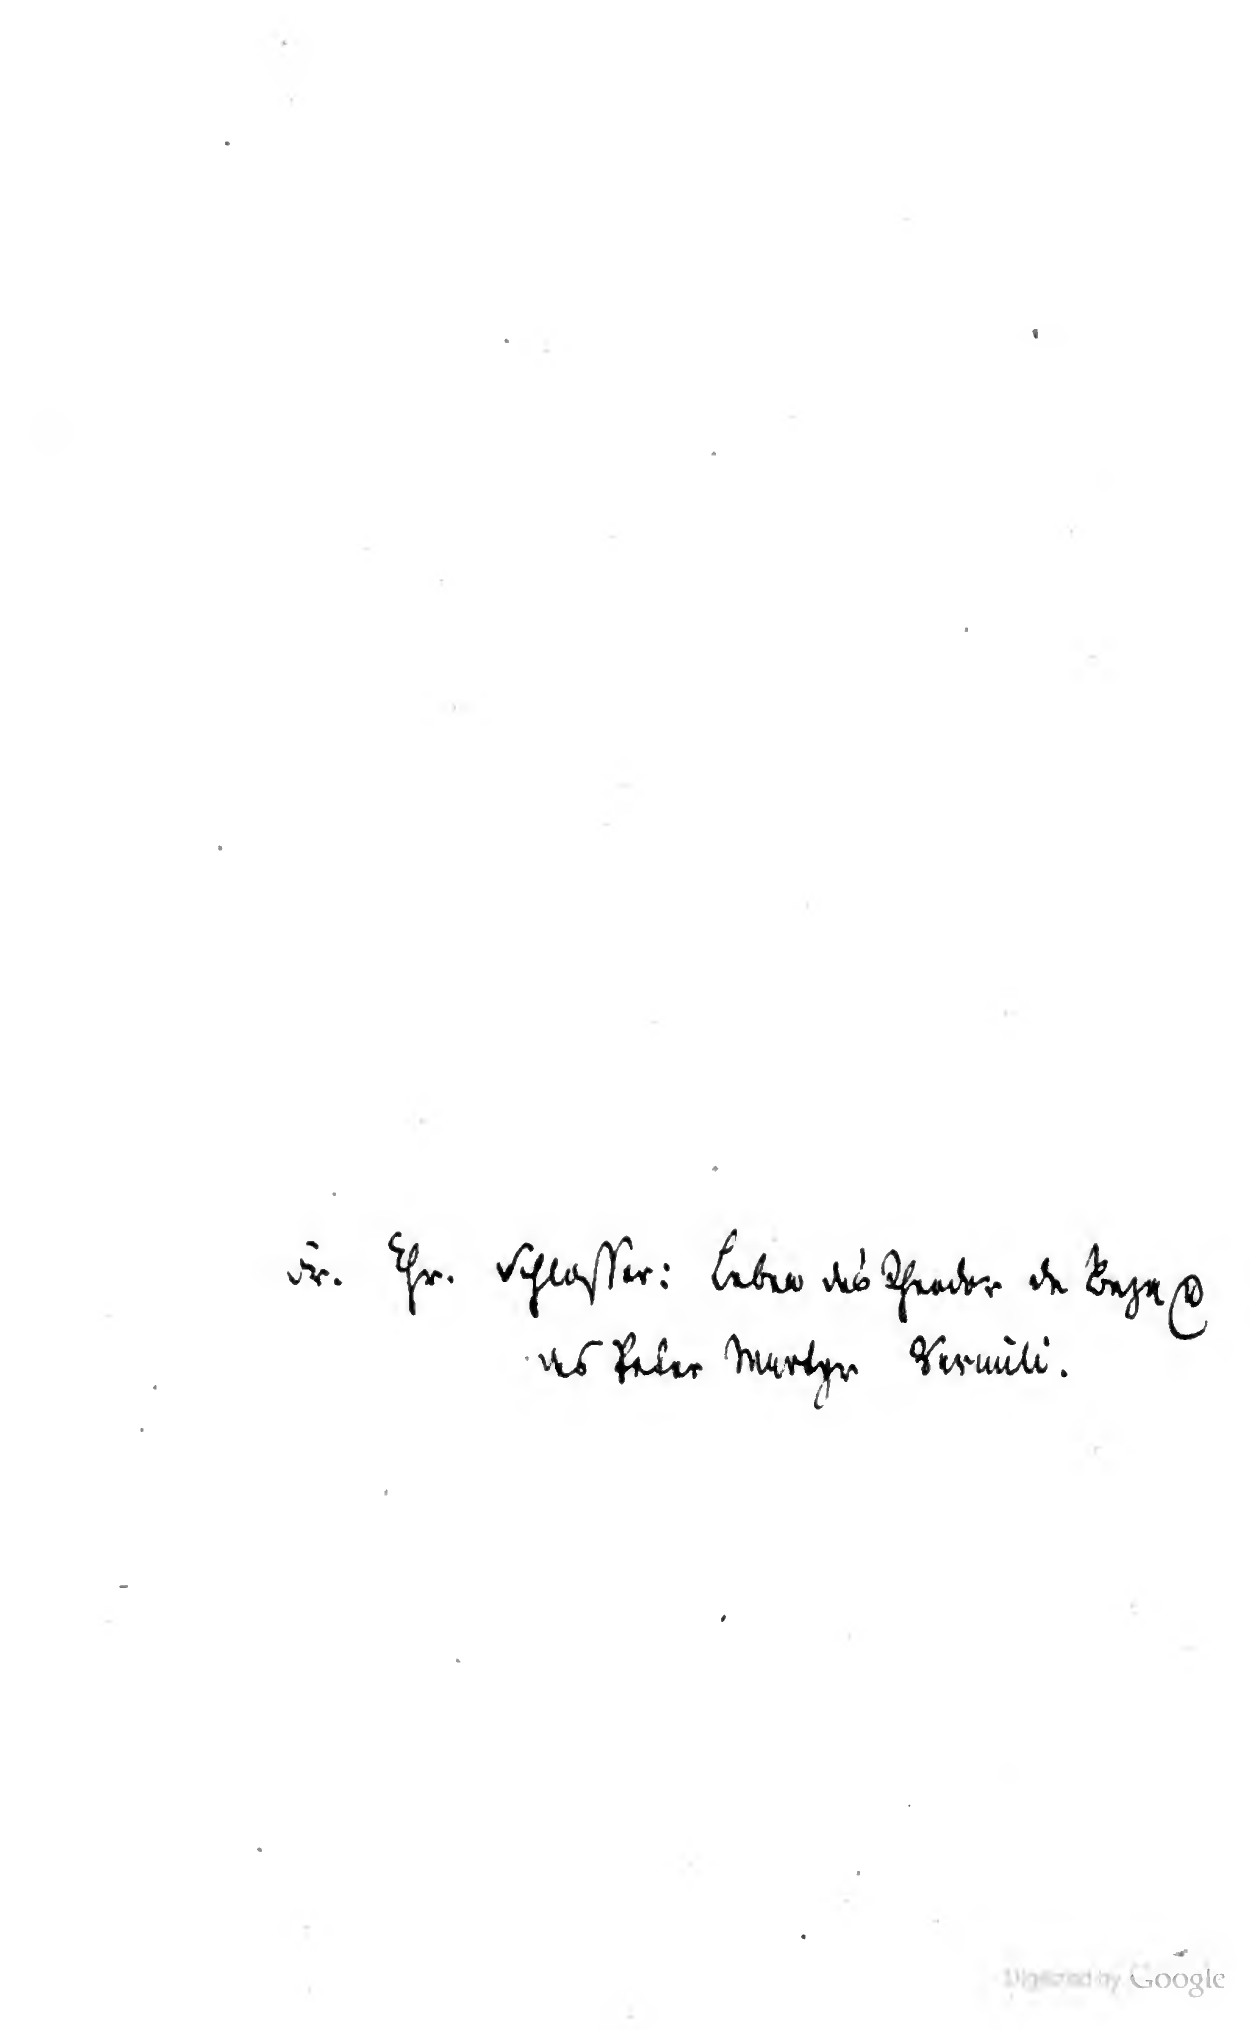 Fr. Chr. Schlosser: Leben des Theodor de Beza &
des Peter Martyr Vermili.
Digitized by Google